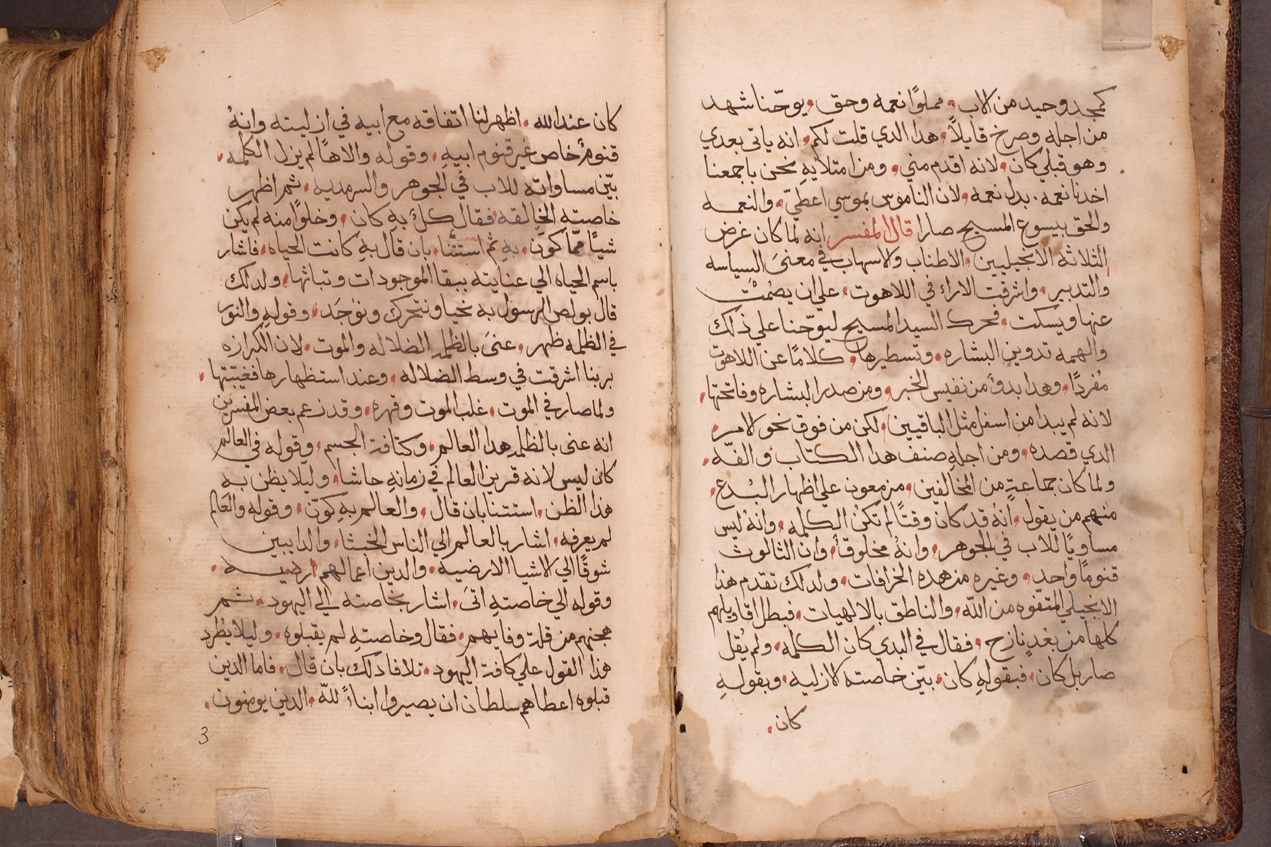 كمجد وحيد من الاب، مملوًا نعمه وحق، ويوحنا شهد
من اجله وصرخ قايلاً، هذا الدي قلت لكم، انه ياتي بعدي
وهو قبلي كان، لانه اقدم مني، ومن امتلايه نحن باجمعنا
اخدنا نعمه، بدل نعمه، لان الناموس بموسي اعطي، والنعمه
والحق بيسوع المسيح صارا قال المفسر انه لما كان غرض
الثلاثه الانجيليين، الاطناب والاسهاب في معني السياسه
والتدبير، واشرقت الاراء في اللاهوت، علي ان يصمت
عنها ويسكت، فحرك السيد المسيح ليوحنا علي ذلك
والهمه تدوين البشاره، وتسطيرها، كلامًا عن اللاهوت
مفردًا، وهدا بدؤ من نفس الخبر، ومن صدر البشاره وفاتحتها،
لانه لم يبدا من اسفل مثل الباقيين، لكن من فوق نحو الامر،
الدي قصده، ومن اجله صنف هدا الكتاب والفه،
ولما كان جماعةٍ من المخالفين، مزمعون علي اظهار البدع،
منهم من يقول، انه قد كان وقتًا لم تكن الكلمه، وانه ليس
مساويًا للاب في الجوهر، وانه مخلوقًا، وان الثالوث
قنومًا واحد، وغيره من هده الخرافات، ولدلك تقدم هذا
الانجيلي المتفوه من الله، والناطق بالالهيات، فبطل اقاويلهم
كلها من بعدٍ نازح، فقال في البدي كان الكلمه، ولم يقل
صار بل كان، فبقوله كان، بيّن خاصته الازليه، وبقوله
كان،
كان عند الله، اظهر لنا اتفاقه مع ابيه في ازليته وانه
قنومٌ خاص غير قنوم ابيه، وقوله والاهًا لم يزل الكلمه،
بيّن مساواته للاب في الجوهر والسرمديه، ثم اظهر
خاصته الخالقه فقال كلٌ به كان، وخلوًا منه لم يكن
شيًا مما كون، به ثم استثنا، بان قال به كانت الحياه، فاشار
باسم الحياه الي عنايته ببقا الموجودات وثباثها، ولدلك
قال بولص الرسول به نحيا ونتحرك ونوجد، وقوله والنور
في الظلمه ظهر، عنى بالظلم الضلاله والموت، لان الكرازه
بربنا اشرقت في وسط الضلاله، وعند استظهارها فعيبتها،
ولما صار في الموت، غلب الموت وقهره، وقد زعم بعض المفسرين
انه عنى بالظلم هدا العالم، وكثافة الجسم، وقوله في العالم
كان ليس لانه قرين العالم في زمانه حاشا، وليلا يظن به
هذا الظن، استثنا بان قال، والعالم به كون، وقوله والعالم
لم يعرفه، اشار بالعالم الي الناس الخبثا، والدايبين
شوقًا الي الاشيا الارضيه، والدين اعمالهم ارضيه،
وقوله الي خاصته اتى، اشار بخاصته الي اليهود، ثم
هجنهم من قلت وفايهم، فقال وخاصته لم يقبلوه، وليلا يطرد
هذا القول علي كافة اليهود، تلافا دلك بان قال، فاما الدين
قبلوه اعطاهم سلطان ان يصيروا ابناءً لله، الدين يومنون،
3